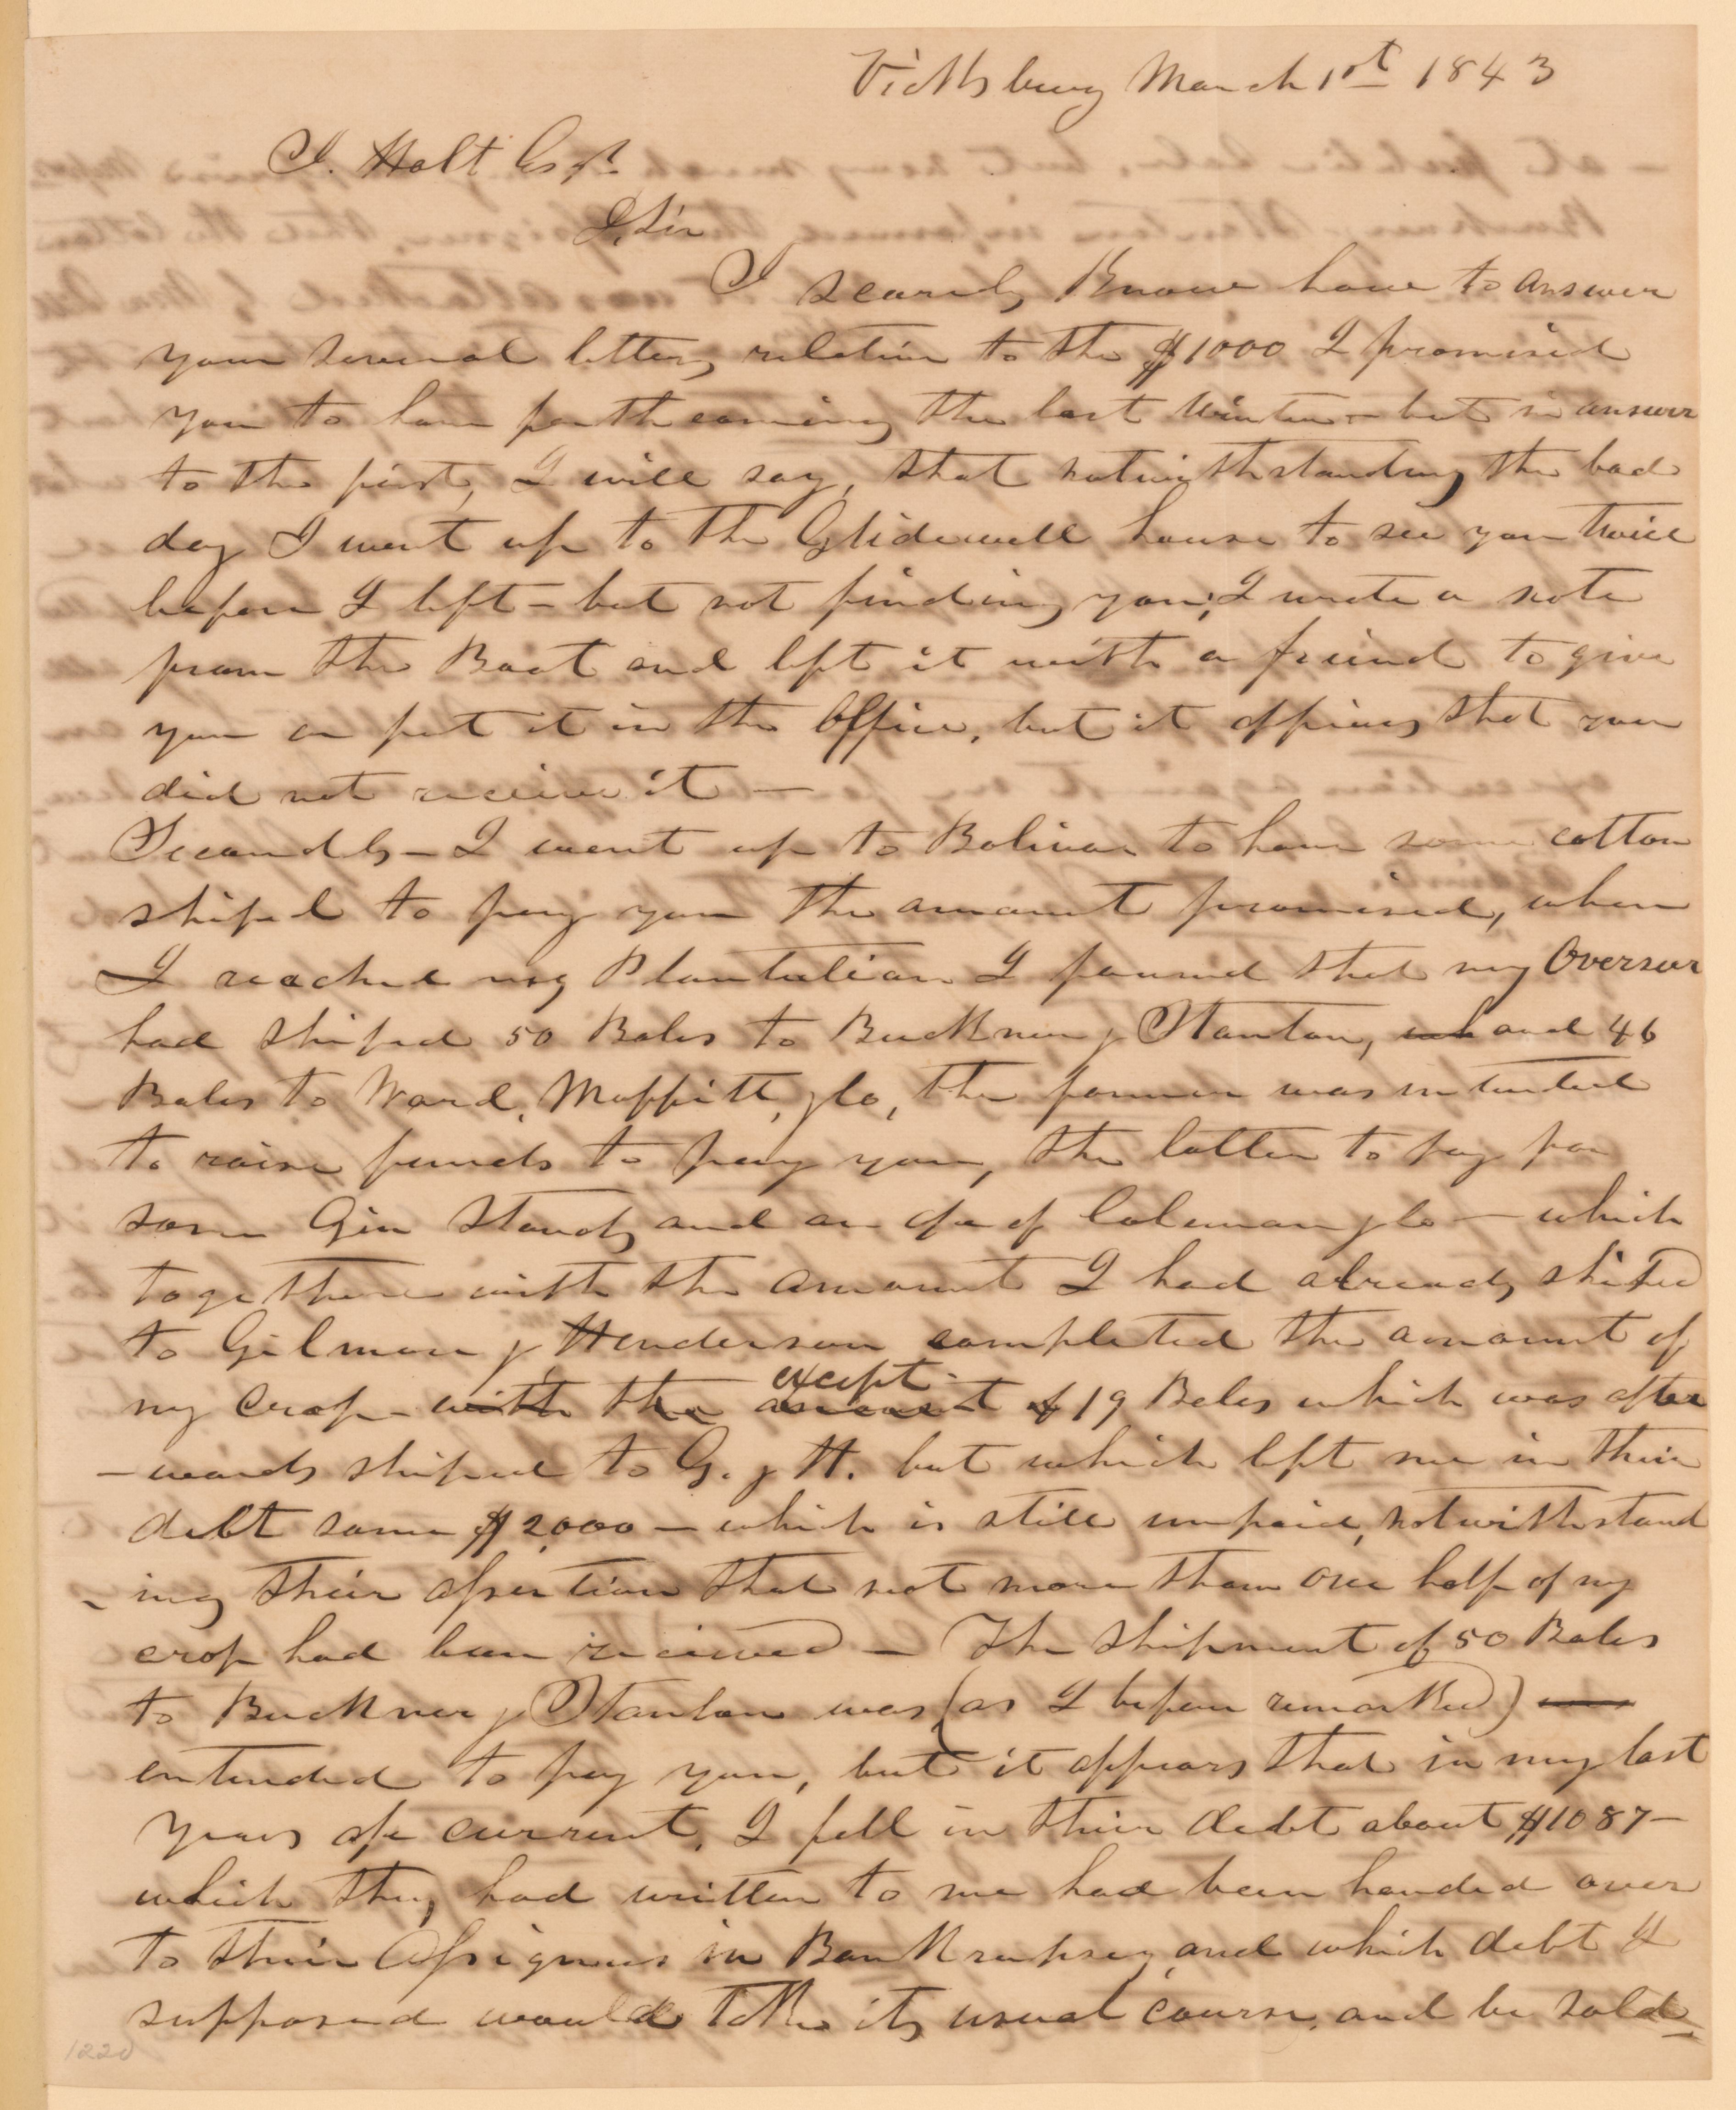 Vicksburg March 1st 1843
J. Holt Esqr.
D. Sir
I scarcely know how to answer
your several letters relative to the $1000 I promised
you to have forthcoming the last Winter - but in answer
to the first, I will say, that notwithstanding the bad
day I went up to the Glidewell house to see you twice
before I left - but not finding you, I wrote a note
from the Boat and left it with a friend to give
you or put it in the Office, but it appears that you
did not receive it —
Secondly - I went up to Bolivar to have some cotton
shiped to pay you the amount promised, when
I reached my Plantation I found that my Overseer
had shiped 50 Bales to Buckner & Stanton, and 46
Bales to Ward, Moffitt, & Co, the former was intended
to raise funds to pay you, the latter to pay for
some Gin Stands and an a/c of Coleman & Co — which
together with the amount I had already shiped
to Gilman & Henderson completed the amount of
my crop - with the amount of except 19 Bales which was after
- wards shiped to G. & H. but which left me in their
debt some $2,000 — which is still unpaid, notwithstand
- ing their assertion that not more than one half of my
crop had been received — The shipment of 50 Bales
to Buckner & Stanton was (as I before remarked)
entended to pay you, but it appears that in my last
years a/c current, I fell in their debt about $1087 —
which they had written to me had been handed over
to their Assignees in Bankrupsey, and which debt I
supposed would take its usual course, and be sold
1220